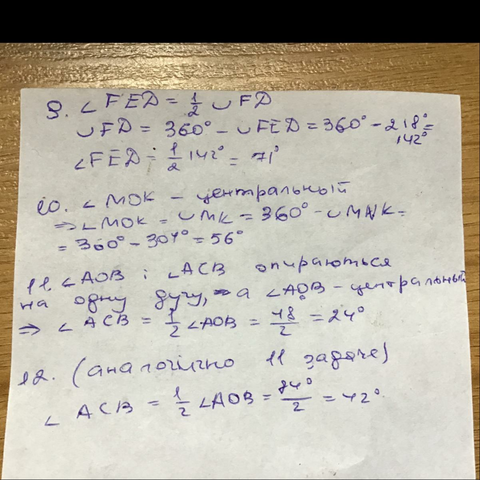 9. ∠FED = 1/2 ∪FD
∪FD = 360° - ∪FED = 360° - 218° =
142°
∠FED = 1/2 142° = 71°
10. ∠MOK - центральный
⇒ ∠MOK = ∪MK = 360° - ∪MNK =
= 360° - 304° = 56°
11. ∠AOB и ∠ACB опираються
на одну дугу, а ∠AOB - центральный
⇒ ∠ACB = 1/2 ∠AOB = 48/2 = 24°
12. (аналогично 11 задаче)
∠ACB = 1/2 ∠AOB = 84°/2 = 42°